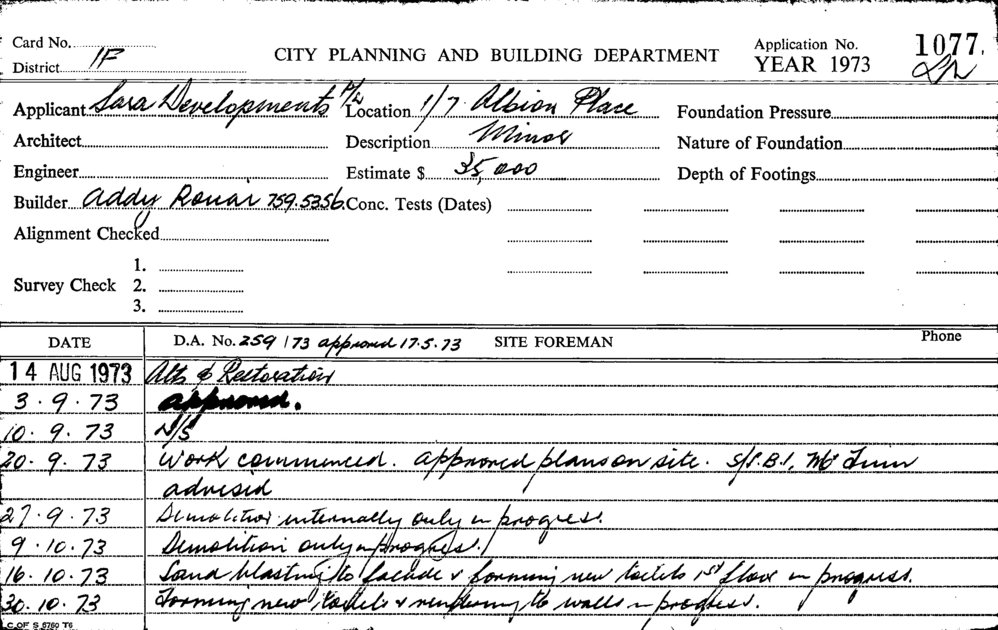 Card No.
District 1F
CITY PLANNING AND BUILDING DEPARTMENT
Application No. 1077
YEAR 1973
Applicant Sara Developments P/L
Location 1/7 Albion Place
Foundation Pressure
Architect
Description Minor
Nature of Foundation
Engineer
Estimate $ 35,000
Depth of Footings
Builder Addy 759.5356
Conc. Tests (Dates)
Alignment Checked
Survey Check
1.
2.
3.
DATE
D.A. No. 259/73 approved 17.5.73
SITE FOREMAN
Phone
14 AUG 1973 Alts & Restoration
3.9.73 approved.
10.9.73 N/S
20.9.73 Work commenced. approved plans on site.
advised
27.9.73 Demolition internally only in progress.
9.10.73 Demolition only in progress.
16.10.73 Sand blasting to facade & forming new toilets 1st floor in progress.
30.10.73 Forming new toilets & rendering to walls in progress.
C OF S 5760 T6